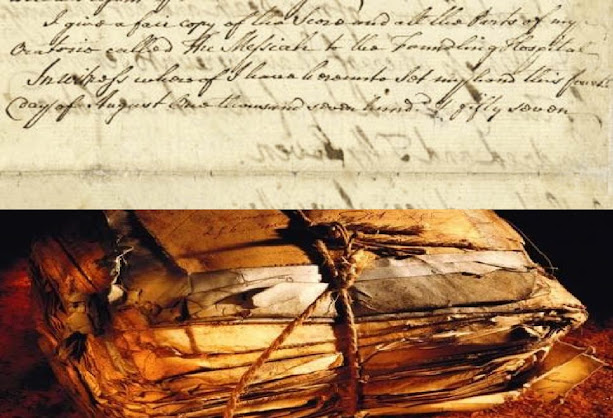 I give a fair copy of the Score and all the Parts of my
Oratorio called The Messiah to the Foundling Hospital
In witness whereof I have hereunto Set my hand this fourth
day of August One thousand seven hund. & fifty seven